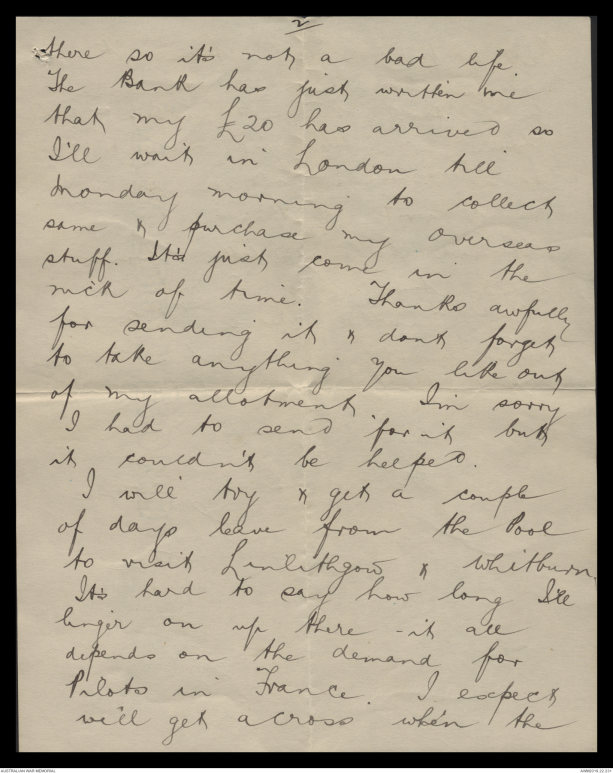 2
there so it's not a bad life.
The Bank has just written me
that my £20 has arrived so
I'll wait in London till
Monday morning to collect
same & purchase my overseas
stuff. It's just come in the
nick of time. Thanks awfully
for sending it & dont forget
to take anything you like out
of my allotment. I'm sorry
I had to send for it but
it couldn't be helped.
I will try & get a couple
of days leave from the Pool
to visit Linlithgow & Whitburn.
It's hard to say how long I'll
linger on up there - it all
depends on the demand for
Pilots in France. I expect
we'll get across when the
AUSTRALIAN WAR MEMORIAL